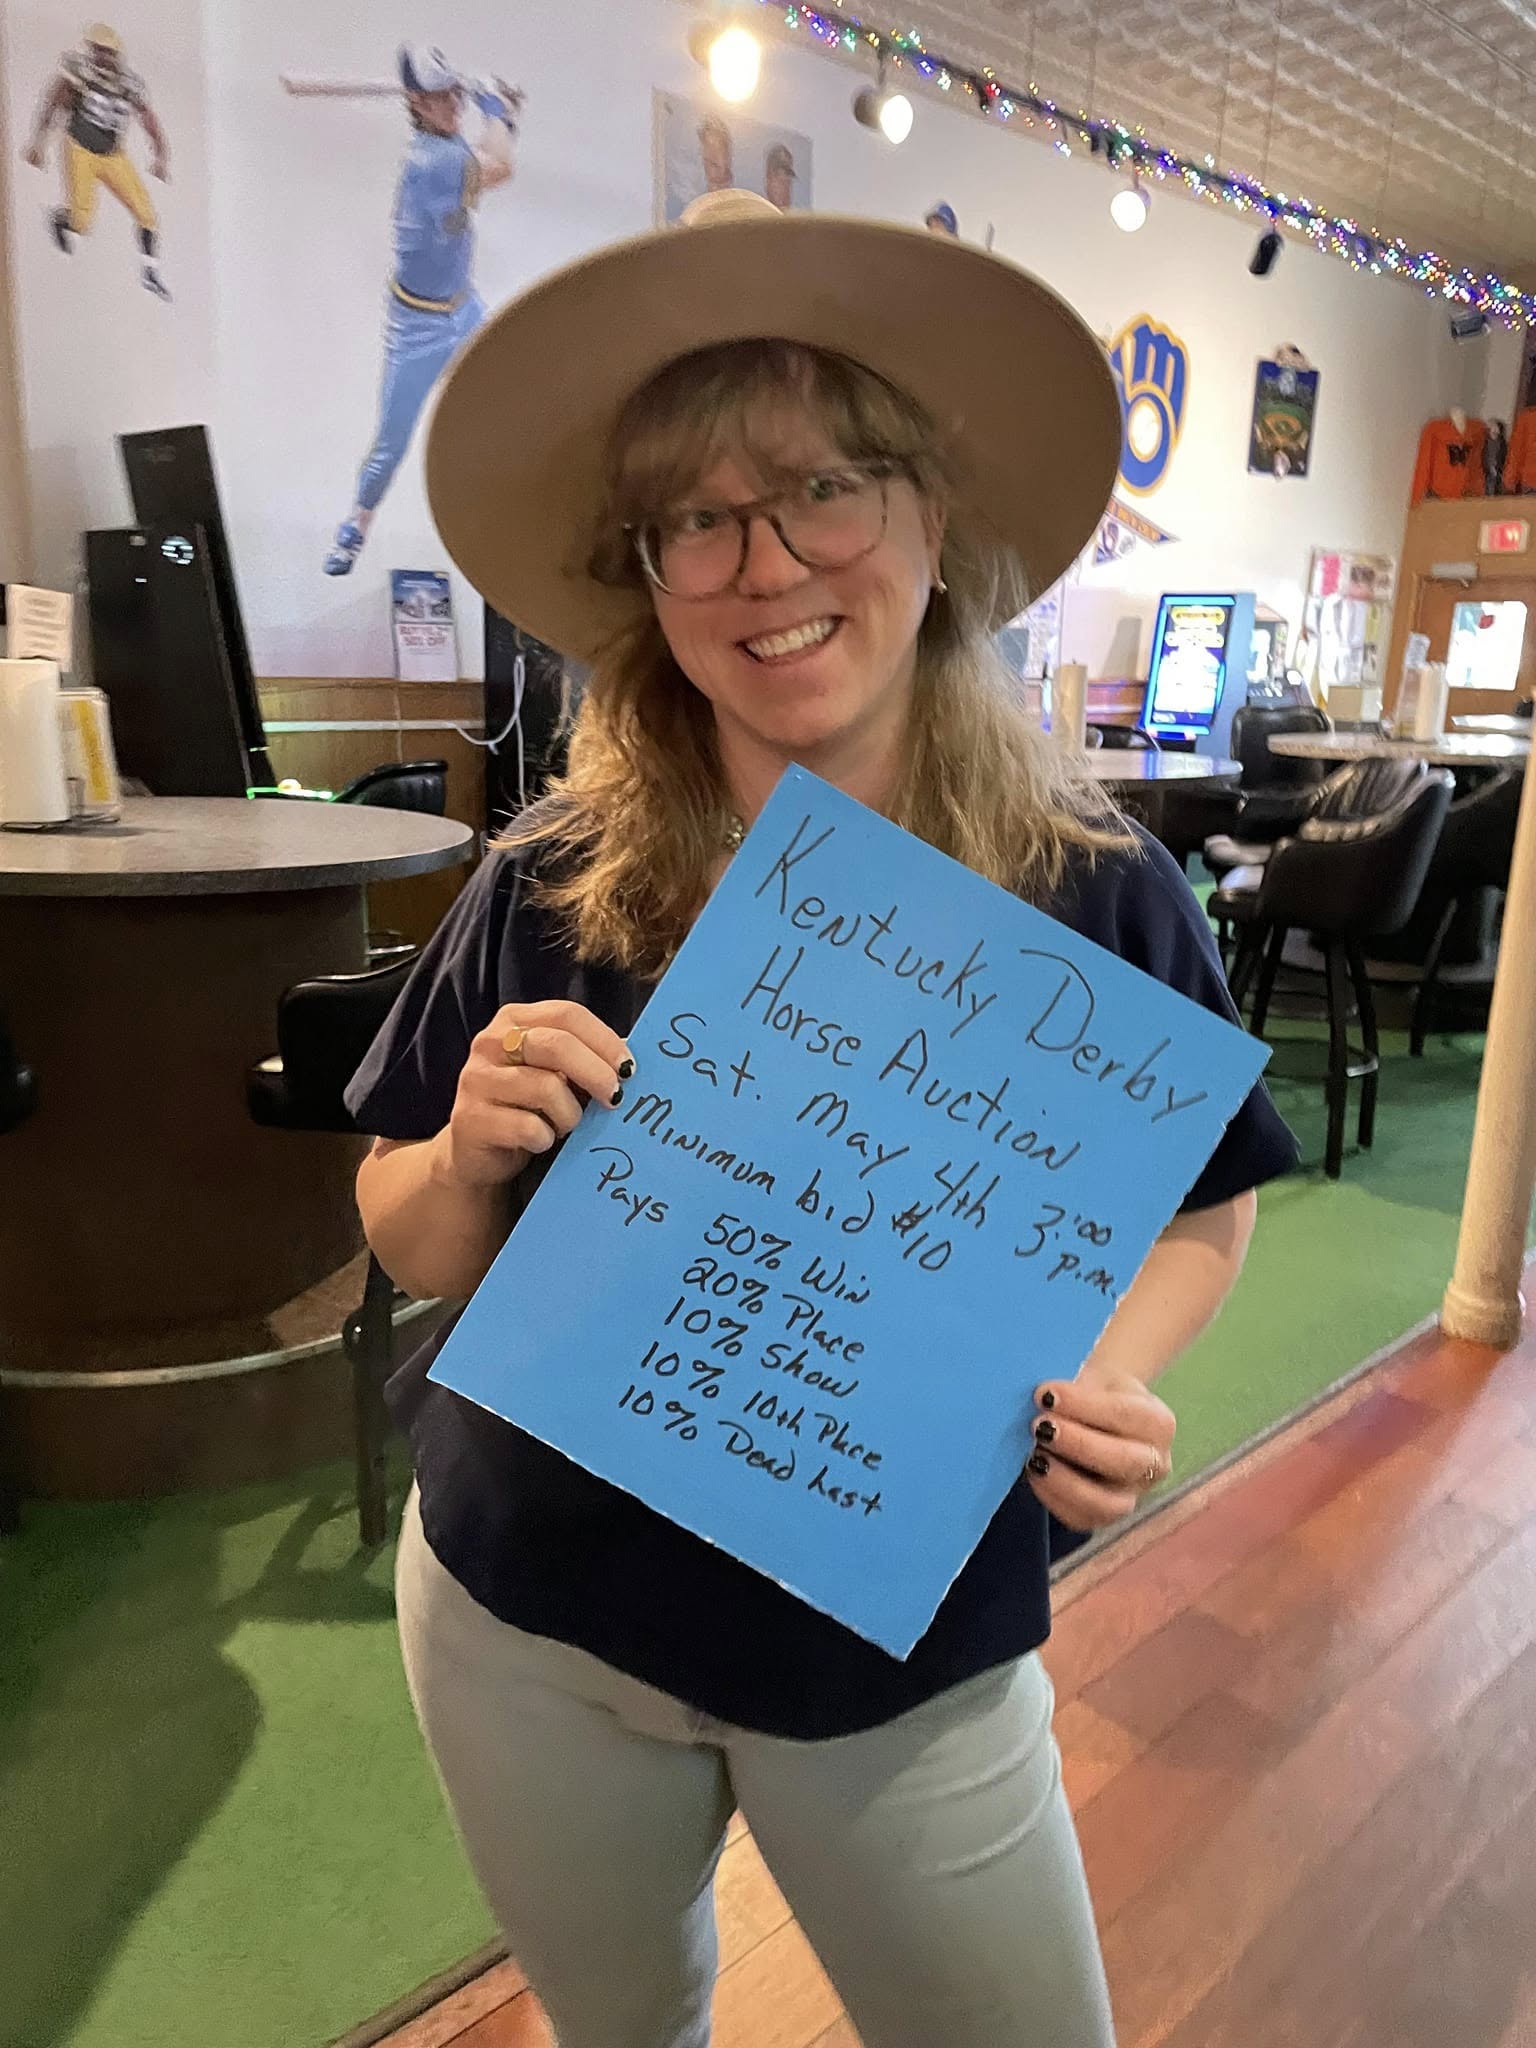 Kentucky Derby
Horse Auction
Sat. May 4th 3:00 p.m.
Minimum bid $10
Pays 50% Win
20% Place
10% Show
10% 10th Place
10% Dead Last